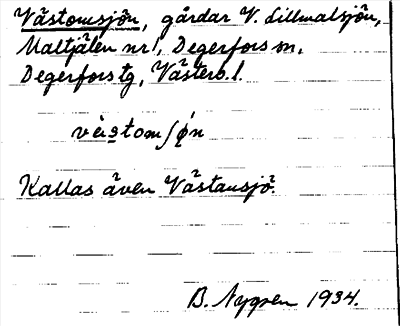 Västomsjön, gårdar V. Lillmalsjön,
Maltjälen nr 1, Degerfors sn,
Degerfors tg, Västerb. l.
vèstomʃǿn
Kallas även Västansjö.
B. Nygren 1934.